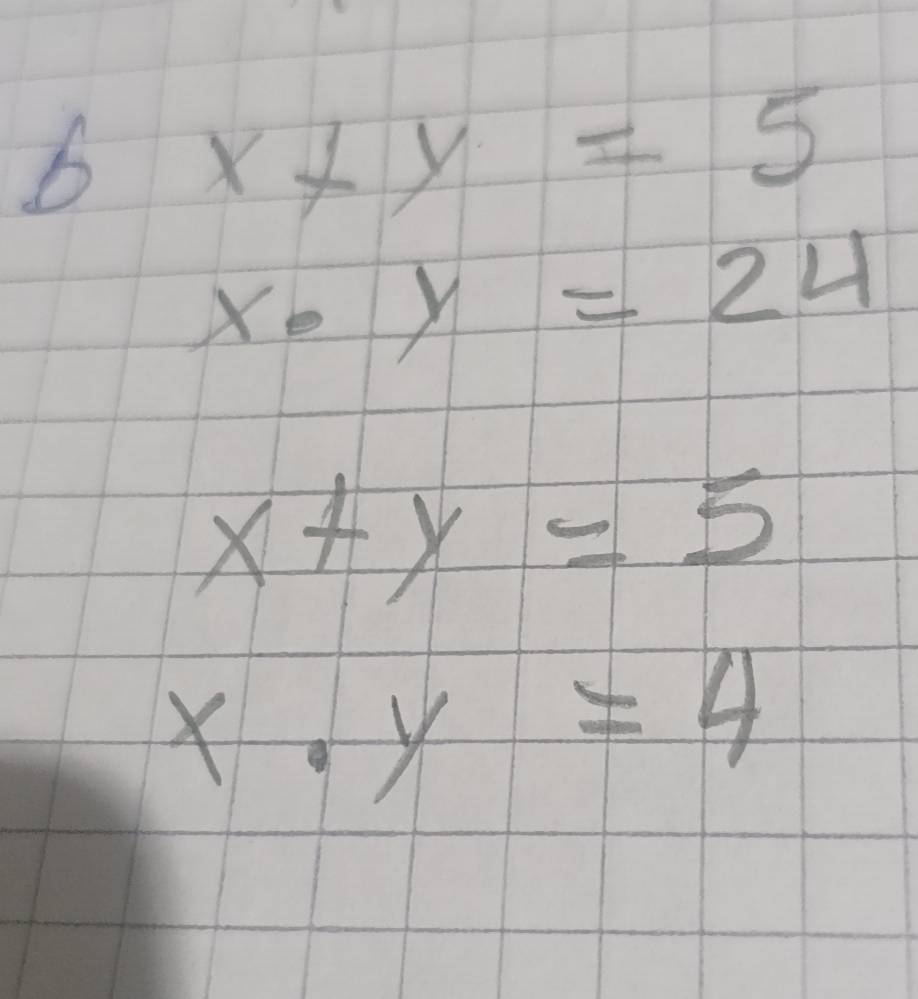 б x + y = 5
x • y = 24
x + y = 5
x . y = 4